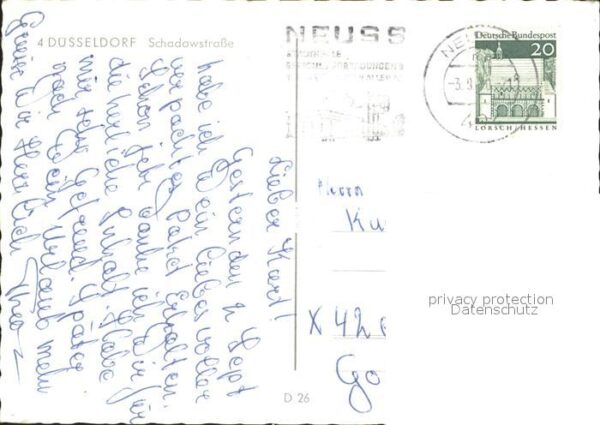 4 DÜSSELDORF Schadowstraße
NEUSS
Deutsche Bundespost
20
LORSCH/HESSEN
Lieber Kurt!
Gestern den 2 Sept
habe ich Dein lieber voller
verpacktes Paket Erhalten.
Schon sehr danke ich Dir für
die herrliche Inhalt. Habe
mir sehr gefreud. Später
nach Dein Urlaub mehr
Herzlich
Theo
Herrn
Ku
X 42
Go
D 26
privacy protection
Datenschutz